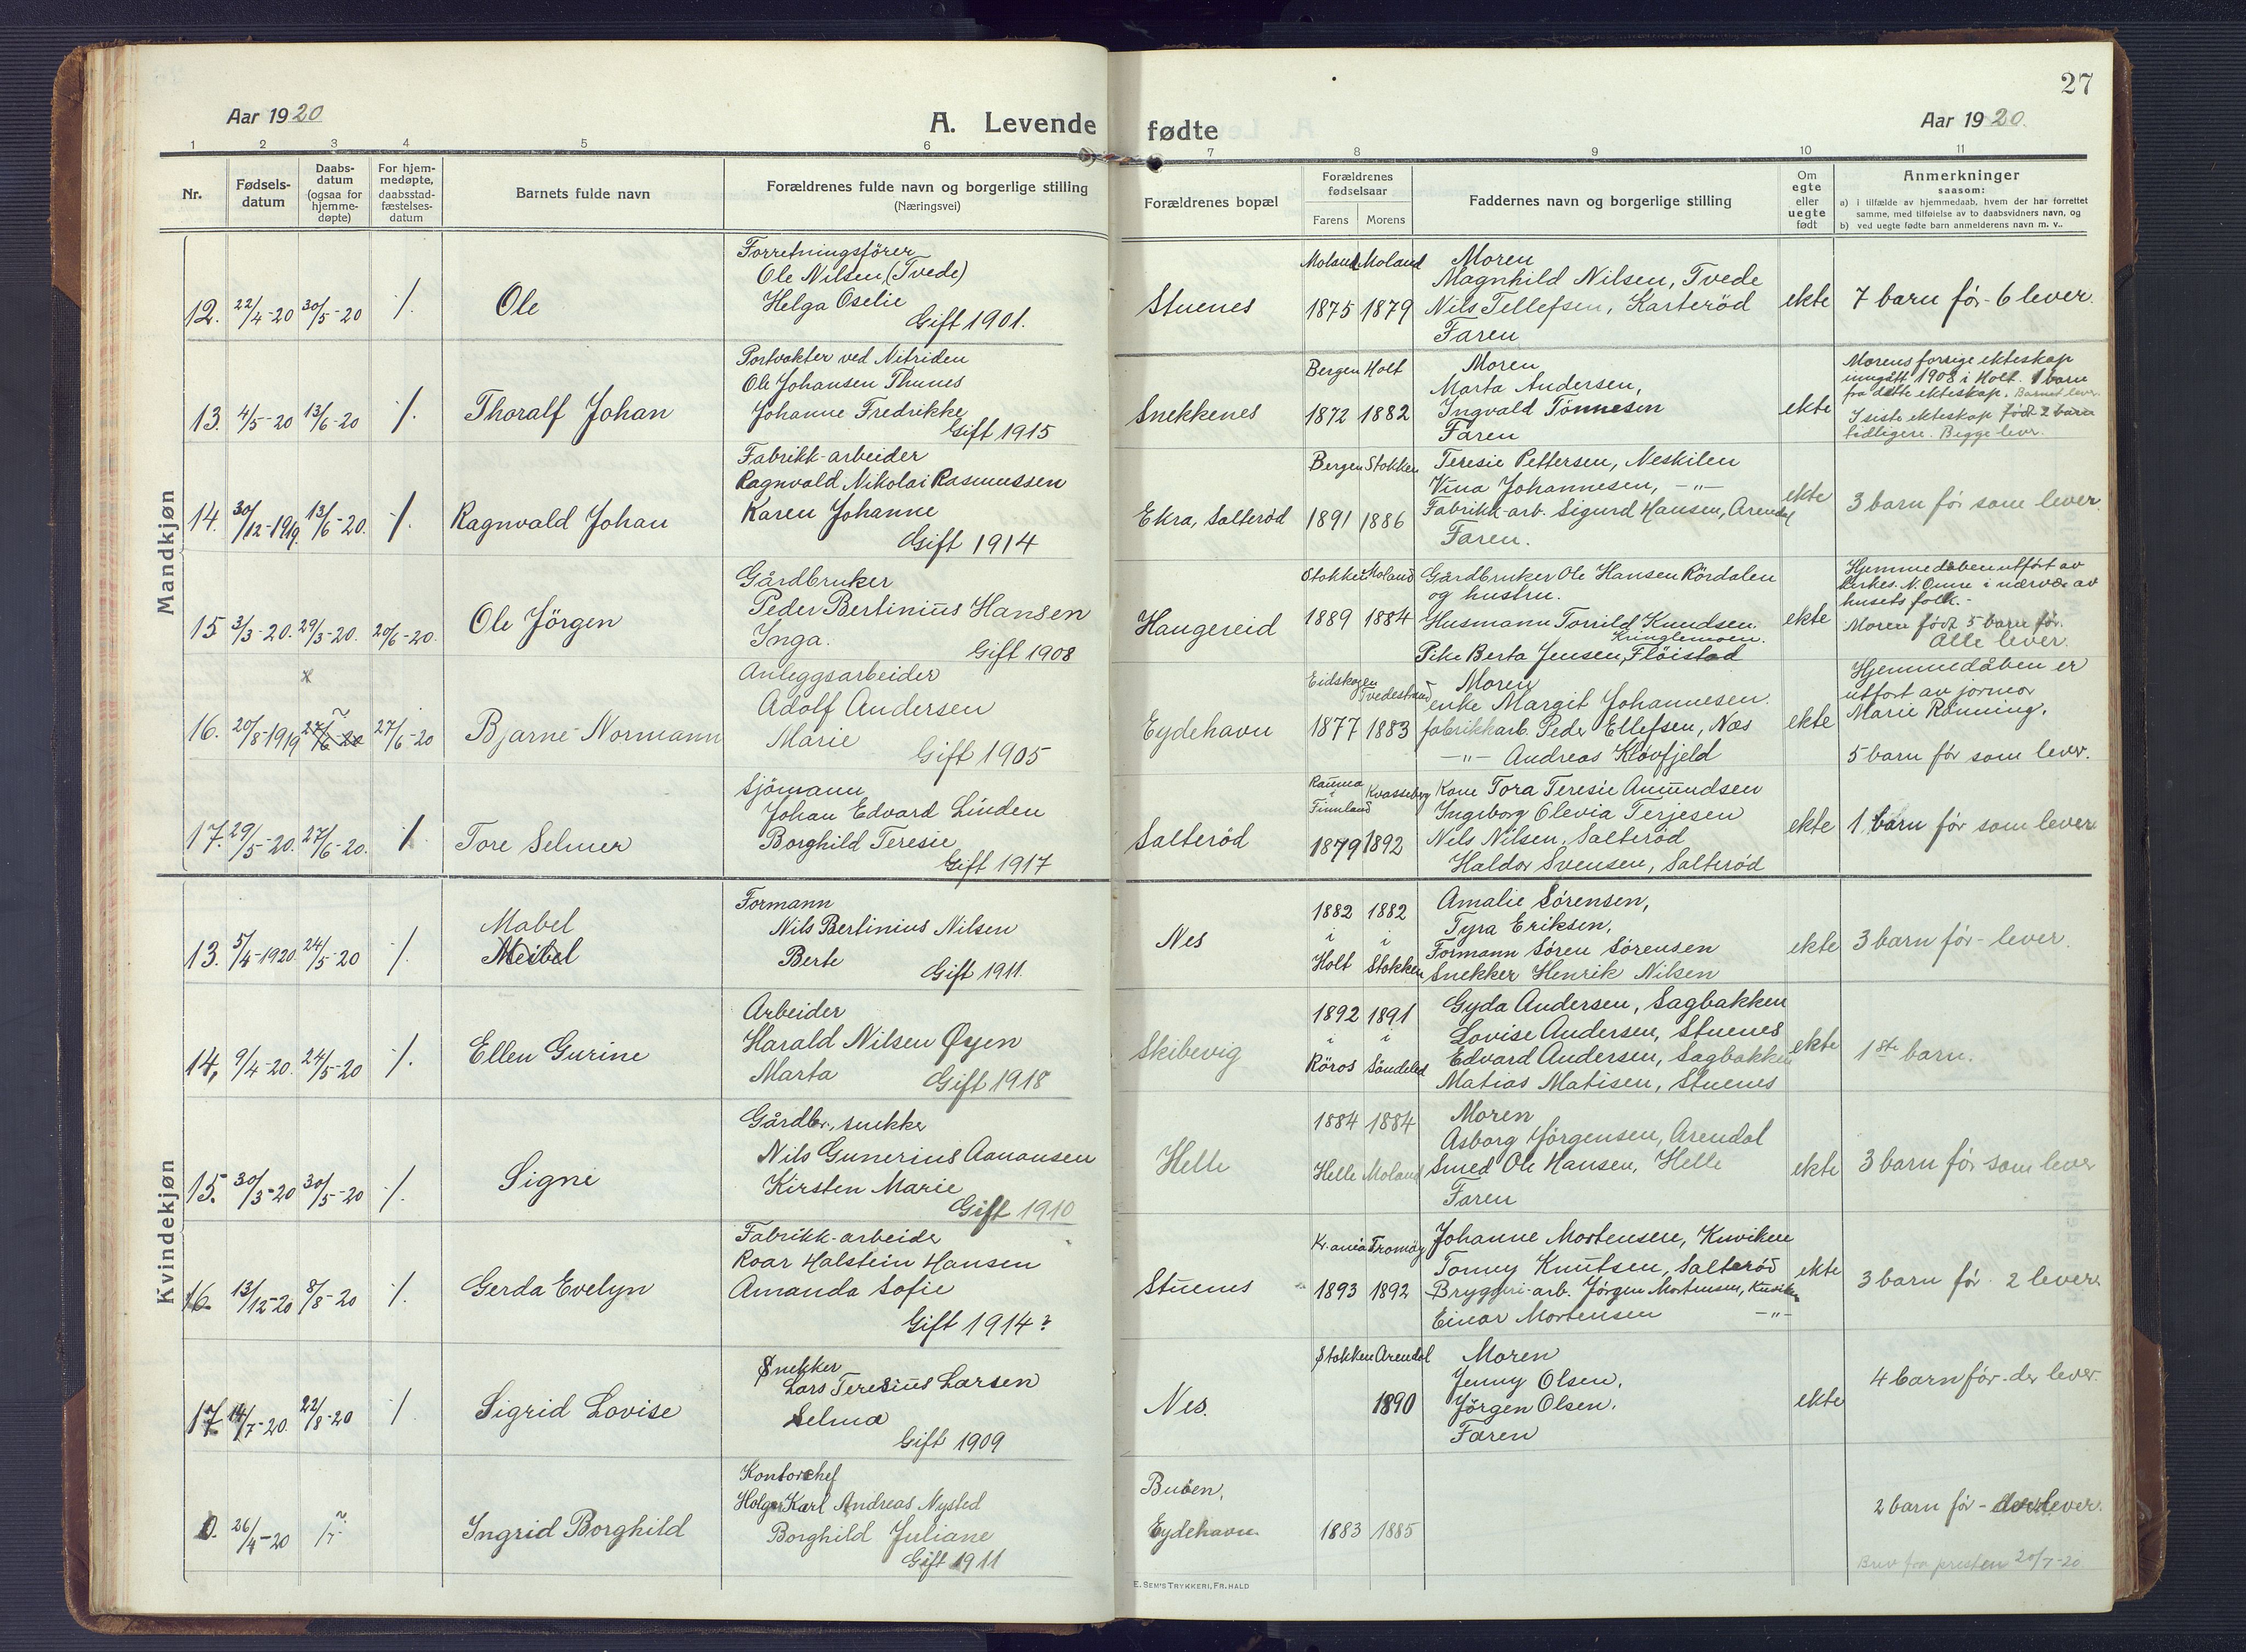 27
Aar 1920
A. Levende fødte
Aar 1920.
1 2 3 4 5 6 7 8 9 10 11
Nr.
Fødsels-
datum
Daabs-
datum
(ogsaa for
hjemme-
døpte)
For hjem-
medøpte,
daabsstad-
fæstelses-
datum
Barnets fulde navn
Forældrenes fulde navn og borgerlige stilling
(Næringsvei)
Forældrenes bopæl
Forældrenes
fødselsaar
Farens Morens
Faddernes navn og borgerlige stilling
Om
egte
eller
uegte
født
Anmerkninger
saasom:
a) i tilfælde av hjemmedaab, hvem der har forrettet
samme, med tilføielse av to daabsvidners navn, og
b) ved uegte fødte barn anmelderens navn m. v..
Mandkjøn
12. 22/4-20 30/5-20 /. Ole
Forretningsfører
Ole Nilsen (Tvede)
Helga Oselie
Gift 1901.
Stuenes
Moland Moland
1875 1879
Moren
Magnhild Nilsen, Tvede
Nils Tellefsen, Karteröd
Faren
ekte
7 barn før - 6 lever.
13. 4/5-20 13/6-20 /. Thoralf Johan
Portvakter ved Nitriden
Ole Johansen Thunes
Johanne Fredrikke
Gift 1915
Snekkenes
Bergen Holt
1872 1882
Moren
Marta Andersen,
Ingvald Tönnesen
Faren
ekte
Morens forrige ekteskap
inngått 1908 i Holt. 1 barn
fra dette ekteskap. Barnet lever.
I siste ekteskap født 2 barn
tidligere. Begge lever.
14. 30/12-1919. 13/6-20. /. Ragnvald Johan
Fabrikk-arbeider
Ragnvald Nikolai Rasmussen
Karen Johanne
Gift 1914
Ekra, Salteröd
Bergen Stokken
1891 1886
Teresie Pettersen, Neskilen
Vina Johannesen, -"-
Fabrikk-arb. Sigurd Hansen, Arendal
Faren.
ekte
3 barn før som lever.
15 3/3-20. 29/3-20. 20/6-20. Ole Jörgen
Gårdbruker
Peder Bertinius Hansen
Inga.
Gift 1908
Haugereid
Stokken Moland
1889 1884
Gårdbruker Ole Hansen Rördalen
og hustru.
Husmann Torrild Knudsen.
Kringlemoen.
Pike Berta Jensen, Flöistad
ekte
Hjemmedåben utført av
kirkes. N. Omre i nærvær av
husets folk.
Moren født 5 barn før.
Alle lever.
16. 20/8-1919 27/6-20 27/6-20 Bjarne Normann
Anleggsarbeider
Adolf Andersen
Marie
Gift 1905
Eydehavn
Eidskogen Tvedestrand
1877 1883
Moren
enke Margit Johannesen.
fabrikkarb. Peder Ellefsen, Næs
-"- Andreas Kløvfjeld
ekte
Hjemmedåben er
utført av jormor
Marie Rønning.
5 barn før som lever.
17. 29/5-20. 27/6-20. /. Tore Selmer
Sjömann
Johan Edvard Linden
Borghild Teresie
Gift 1917
Salteröd
Rauma i Finnland Kvasseberg
1879 1892
Kone Tora Teresie Amundsen
Ingeborg Olevia Terjesen
Nils Nilsen, Salteröd
Haldor Svensen, Salteröd
ekte
1 barn før som lever
Kvindekjøn
13. 5/4-1920 24/5-20 /. Mabel
Meibel
Formann
Nils Bertinius Nilsen
Berte
Gift 1911.
Nes
1882 1882
i i
Holt Stokken
Amalie Sörensen,
Tyra Eriksen,
Formann Sören Sörensen
Snekker Henrik Nilsen
ekte
3 barn før - lever.
14, 9/4-20. 24/5-20 /. Ellen Gurine
Arbeider
Harald Nilsen Øyen
Marta
Gift 1918
Skibevig
1892 1891
i i
Röros Söndeled
Gyda Andersen, Sagbakken
Lovise Andersen, Stuenes
Edvard Andersen, Sagbakken
Matias Matisen, Stuenes
ekte
1ste barn.
15. 30/3-20 30/5-20 /. Signe
Gårdbr., snekker
Nils Gunerius Aanonsen
Kirsten Marie
Gift 1910
Helle
1884 1884
Helle Moland
Moren
Asborg Jörgensen, Arendal
Smed Ole Hansen, Helle
Faren
ekte
3 barn før som lever
16. 13/12-20 8/8-20 /. Gerda Evelyn
Fabrikk-arbeider
Roar Halstein Hansen
Amanda Sofie
Gift 1914?
Stuenes
Kr.ania Tromöy
1893 1892
Johanne Mortensen, Kuviken
Tonny Knutsen, Salteröd
Bryggeri-arb. Jörgen Mortensen, Kuviken
Einar Mortensen -"-
ekte
3 barn før - 2 lever.
17 14/7-20. 22/8-20 /. Sigrid Lovise
Snekker
Lars Teresius Larsen
Selma
Gift 1909
Nes.
Stokken Arendal
1890
Moren
Jenny Olsen,
Jörgen Olsen.
Faren
ekte
4 barn før - der lever.
0. 26/4-20 Ingrid Borghild
Kontorchef
Holger Karl Andreas Nysted
Borghild Juliane
Gift 1911
Buöen,
Eydehavn
1883 1885
2 barn før - der lever.
Brev fra presten 20/7-20
E. SEM'S TRYKKERI, FR. HALD